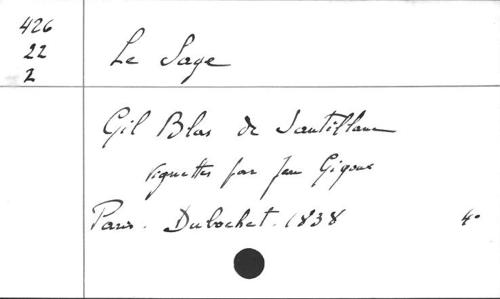 426
22
2
Le Sage
Gil Blas de Santillane
vignettes par Jean Gigoux
Paris. Dubochet. 1838 4°